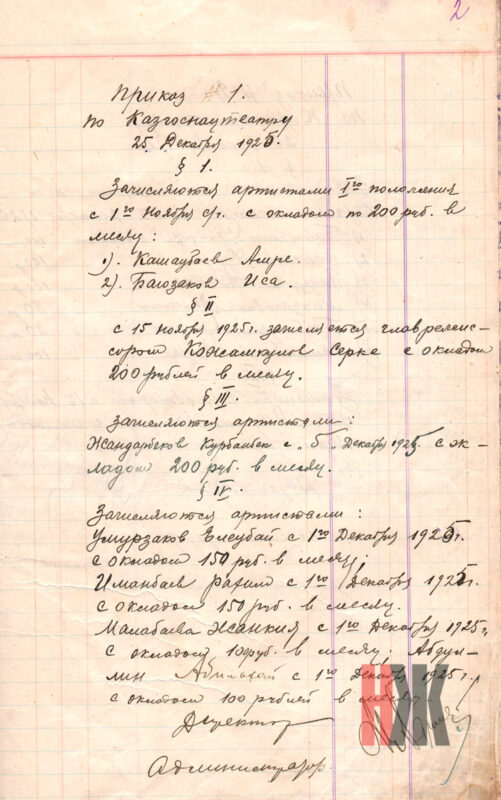 2
Приказ № 1.
по Казгоснацтеатру
25 Декабря 1925.
§ 1.
Зачисляются артистами I го положения
с 1го Ноября с/г. с окладом по 200 руб. в
месяц:
1). Кашаубаев Амре.
2). Баюзаков Иса.
§ II
с 15 Ноября 1925 г. зачисляется главрежис-
сером Кожамкулов Серке с окладом
200 рублей в месяц.
§ III.
Зачисляются артистами:
Жандарбеков Курбанбек с „5„ Декабря 1925 с ок-
ладом 200 руб. в месяц.
§ IV.
Зачисляются артистами:
Умурзаков Елеубай с 1го Декабря 1925 г.
с окладом 150 руб. в месяц;
Иманбаев Рахим с 1го Декабря 1925 г.
с окладом 150 руб. в месяц.
Малабаева Жанкия с 1го Декабря 1925 г.
с окладом 100 руб. в месяц. Абдул-
лин с 1го Декабря 1925 г.
с окладом 100 рублей в месяц.
Директор
НАК
Администратор.